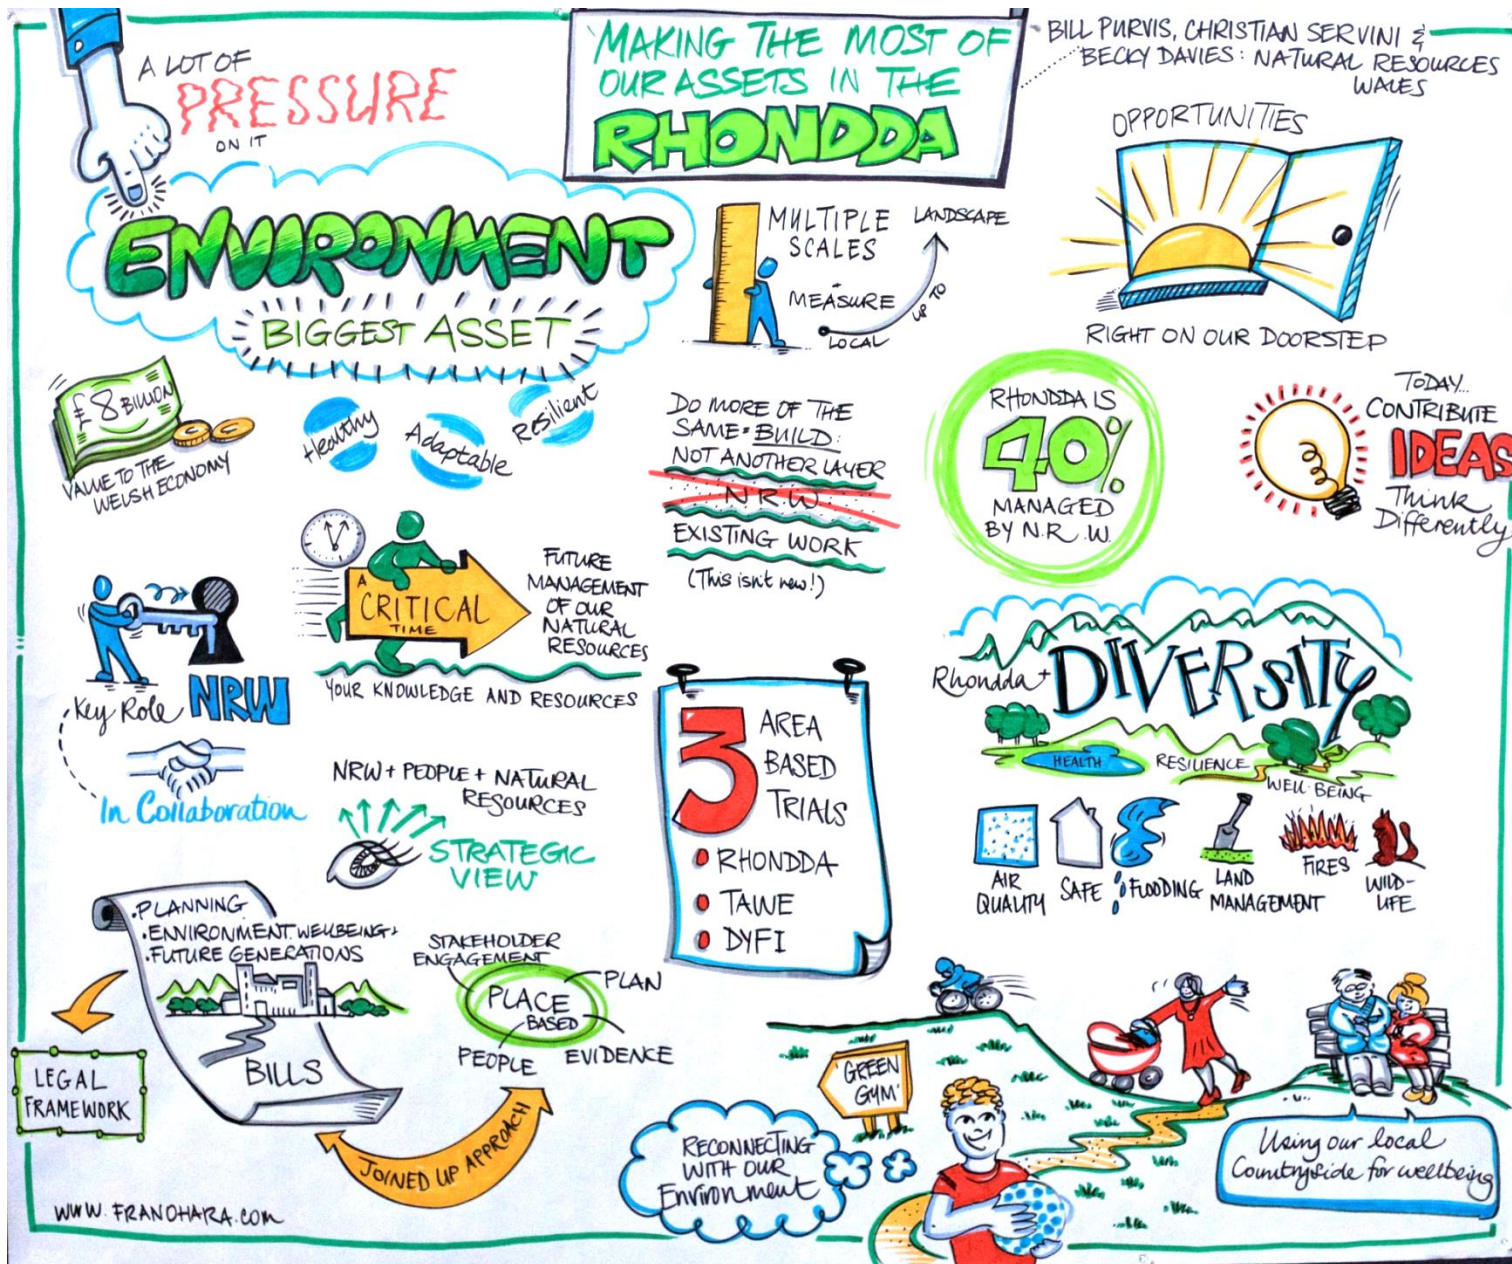 A LOT OF
PRESSURE
ON IT
MAKING THE MOST OF
OUR ASSETS IN THE
RHONDDA
BILL PURVIS, CHRISTIAN SERVINI &
BECKY DAVIES: NATURAL RESOURCES
WALES
ENVIRONMENT
BIGGEST ASSET
MULTIPLE
SCALES
- MEASURE
LOCAL
UP TO
LANDSCAPE
OPPORTUNITIES
RIGHT ON OUR DOORSTEP
£8 BILLION
VALUE TO THE
WELSH ECONOMY
Healthy
Adaptable
Resilient
DO MORE OF THE
SAME = BUILD:
NOT ANOTHER LAYER
N.R.W.
EXISTING WORK
(This isn't new!)
RHONDDA IS
40%
MANAGED
BY N.R.W.
TODAY...
CONTRIBUTE
IDEAS
Think
Differently
A
CRITICAL
TIME
FUTURE
MANAGEMENT
OF OUR
NATURAL
RESOURCES
YOUR KNOWLEDGE AND RESOURCES
Key Role NRW
In Collaboration
NRW + PEOPLE + NATURAL
RESOURCES
STRATEGIC
VIEW
3 AREA
BASED
TRIALS
• RHONDDA
• TAWE
• DYFI
Rhondda + DIVERSITY
HEALTH
RESILIENCE
WELL-BEING
AIR
QUALITY
SAFE
FLOODING
LAND
MANAGEMENT
FIRES
WILD-
LIFE
• PLANNING
• ENVIRONMENT, WELLBEING +
• FUTURE GENERATIONS
BILLS
LEGAL
FRAMEWORK
STAKEHOLDER
ENGAGEMENT
PLAN
PLACE
BASED
PEOPLE
EVIDENCE
JOINED UP APPROACH
'GREEN
GYM'
RECONNECTING
WITH OUR
Environment
Using our local
Countryside for wellbeing
WWW.FRANOHARA.COM